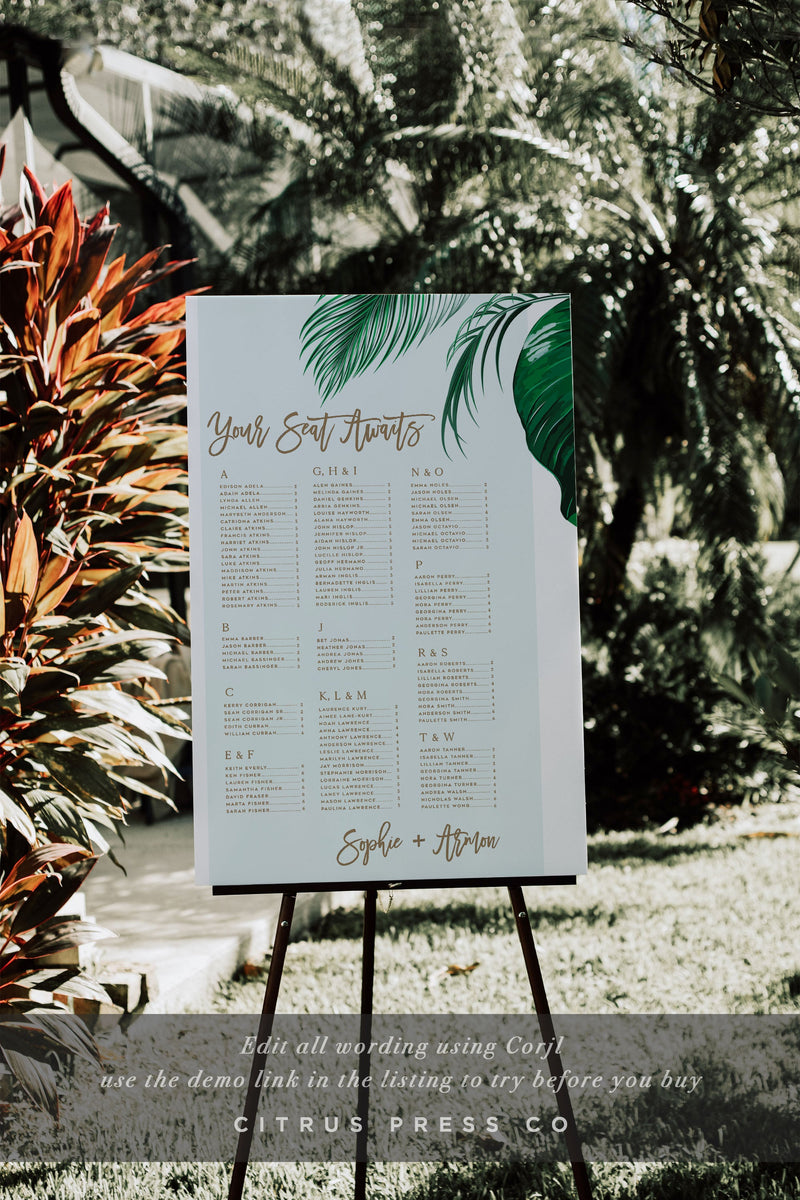 Your Seat Awaits
A
EDISON ADELA
ADAIN ADELA
LYNDA ALLEN
MICHAEL ALLEN
MARYBETH ANDERSON
CATRIONA ATKINS
CLAIRE ATKINS
FRANCIS ATKINS
HARRIET ATKINS
JOHN ATKINS
SARA ATKINS
LUKE ATKINS
MADDISON ATKINS
MIKE ATKINS
MARTIN ATKINS
PETER ATKINS
ROBERT ATKINS
ROSEMARY ATKINS
B
EMMA BARBER
JASON BARBER
MICHAEL BARBER
MICHAEL BASSINGER
SARAH BASSINGER
C
KERRY CORRIGAN
SEAN CORRIGAN SR
SEAN CORRIGAN JR
EDITH CURRAN
WILLIAM CURRAN
E & F
KEITH EVERLY
KEN FISHER
LAUREN FISHER
SAMANTHA FISHER
DAVID FRASER
MARTA FISHER
SARAH FISHER
G, H & I
ALEN GAINES
MELINDA GAINES
DANIEL GENKINS
ARRIA GENKINS
LOUISE HAYWORTH
ALANA HAYWORTH
JOHN HISLOP
JENNIFER HISLOP
AIDAN HISLOP
JOHN HISLOP JR
LUCILLE HISLOP
GEOFF HERMANO
JULIA HERNANO
ARMAN INGLIS
BERNADETTE INGLIS
LAUREN INGLIS
MARI INGLIS
RODERICK INGLIS
J
BET JONAS
HEATHER JONAS
ANDREA JONAS
ANDREW JONES
CHERYL JONES
K, L & M
LAURENCE KURT
AIMEE LANE-KURT
NOAH LAWRENCE
ANNA LAWRENCE
ANTHONY LAWRENCE
ANDERSON LAWRENCE
LESLIE LAWRENCE
MARILYN LAWRENCE
JAY MORRISON
STEPHANIE MORRISON
LORRAINE MORRISON
LUCAS LAWRENCE
LANEY LAWRENCE
MASON LAWRENCE
PAULINA LAWRENCE
N & O
EMMA NOLES
JASON NOLES
MICHAEL OLSEN
MICHAEL OLSEN
SARAH OLSEN
EMMA OLSEN
JASON OCTAVIO
MICHAEL OCTAVIO
MICHAEL OCTAVIO
SARAH OCTAVIO
P
AARON PERRY
ISABELLA PERRY
LILLIAN PERRY
GEORGINA PERRY
NORA PERRY
GEORGINA PERRY
NORA PERRY
ANDERSON PERRY
PAULETTE PERRY
R & S
AARON ROBERTS
ISABELLA ROBERTS
LILLIAN ROBERTS
GEORGINA ROBERTS
NORA ROBERTS
GEORGINA SMITH
NORA SMITH
ANDERSON SMITH
PAULETTE SMITH
T & W
AARON TANNER
ISABELLA TANNER
LILLIAN TANNER
GEORGINA TANNER
NORA TURNER
GEORGINA TURNER
ANDREA WALSH
NICHOLAS WALSH
PAULETTE WONG
Sophie + Armon
Edit all wording using Corjl
use the demo link in the listing to try before you buy
CITRUS PRESS CO